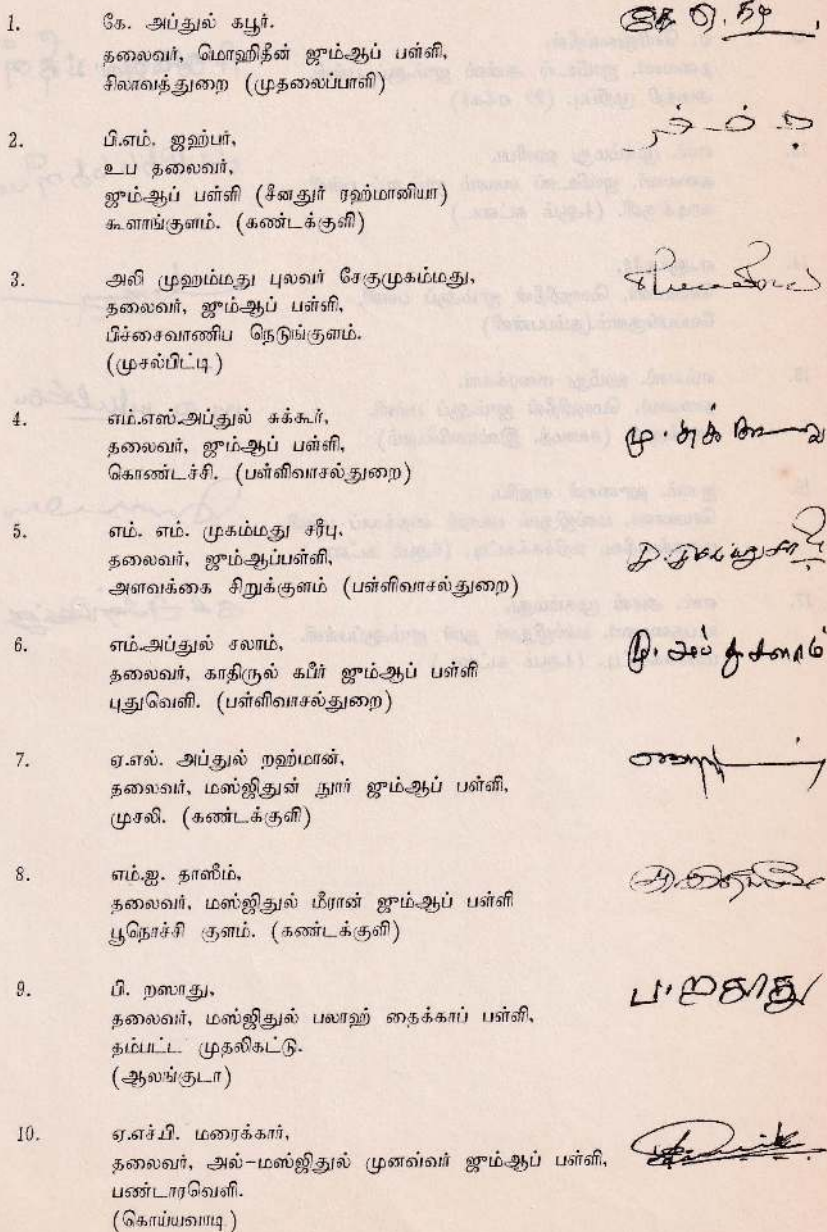 1. கே. அப்துல் கபூர்.
தலைவர், மொஹிதீன் ஜும்ஆப் பள்ளி,
சிலாவத்துறை (முதலைப்பாளி)
2. பி.எம். ஜஹ்பர்,
உப தலைவர்,
ஜும்ஆப் பள்ளி (சீனதுர் ரஹ்மானியா)
கூளாங்குளம். (கண்டக்குளி)
3. அலி முஹம்மது புலவர் சேகுமுகம்மது,
தலைவர், ஜும்ஆப் பள்ளி,
பிச்சைவாணிப நெடுங்குளம்.
(முசல்பிட்டி)
4. எம்.எஸ்.அப்துல் சுக்கூர்,
தலைவர், ஜும்ஆப் பள்ளி,
கொண்டச்சி. (பள்ளிவாசல்துறை)
5. எம். எம். முகம்மது சரீபு,
தலைவர், ஜும்ஆப்பள்ளி,
அளவக்கை சிறுக்குளம் (பள்ளிவாசல்துறை)
6. எம்.அப்துல் சலாம், மு. அப்துசலாம்
தலைவர், காதிருல் கபீர் ஜும்ஆப் பள்ளி
புதுவெளி. (பள்ளிவாசல்துறை)
7. ஏ.எல். அப்துல் றஹ்மான்,
தலைவர், மஸ்ஜிதுன் நூர் ஜும்ஆப் பள்ளி,
முசலி. (கண்டக்குளி)
8. எம்.ஐ. தாஸீம்,
தலைவர், மஸ்ஜிதுல் மீரான் ஜும்ஆப் பள்ளி
பூநொச்சி குளம். (கண்டக்குளி)
9. பி. றஸாது,
தலைவர், மஸ்ஜிதுல் பலாஹ் தைக்காப் பள்ளி,
தம்பட்ட முதலிகட்டு.
(ஆலங்குடா)
10. ஏ.எச்.பி. மரைக்கார்,
தலைவர், அல்-மஸ்ஜிதுல் முனவ்வர் ஜும்ஆப் பள்ளி,
பண்டாரவெளி.
(கொய்யவாடி)